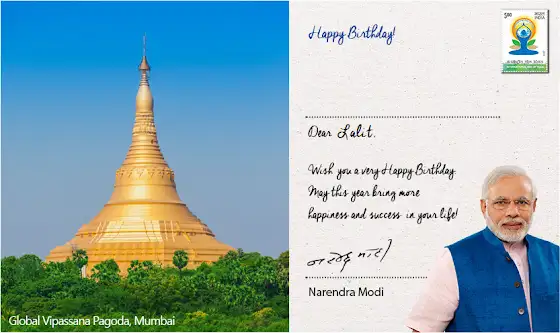 Happy Birthday!
5.00
INDIA
Dear Lalit,
Wish you a very Happy Birthday.
May this year bring more
happiness and success in your life!
नरेन्द्र मोदी
Narendra Modi
Global Vipassana Pagoda, Mumbai